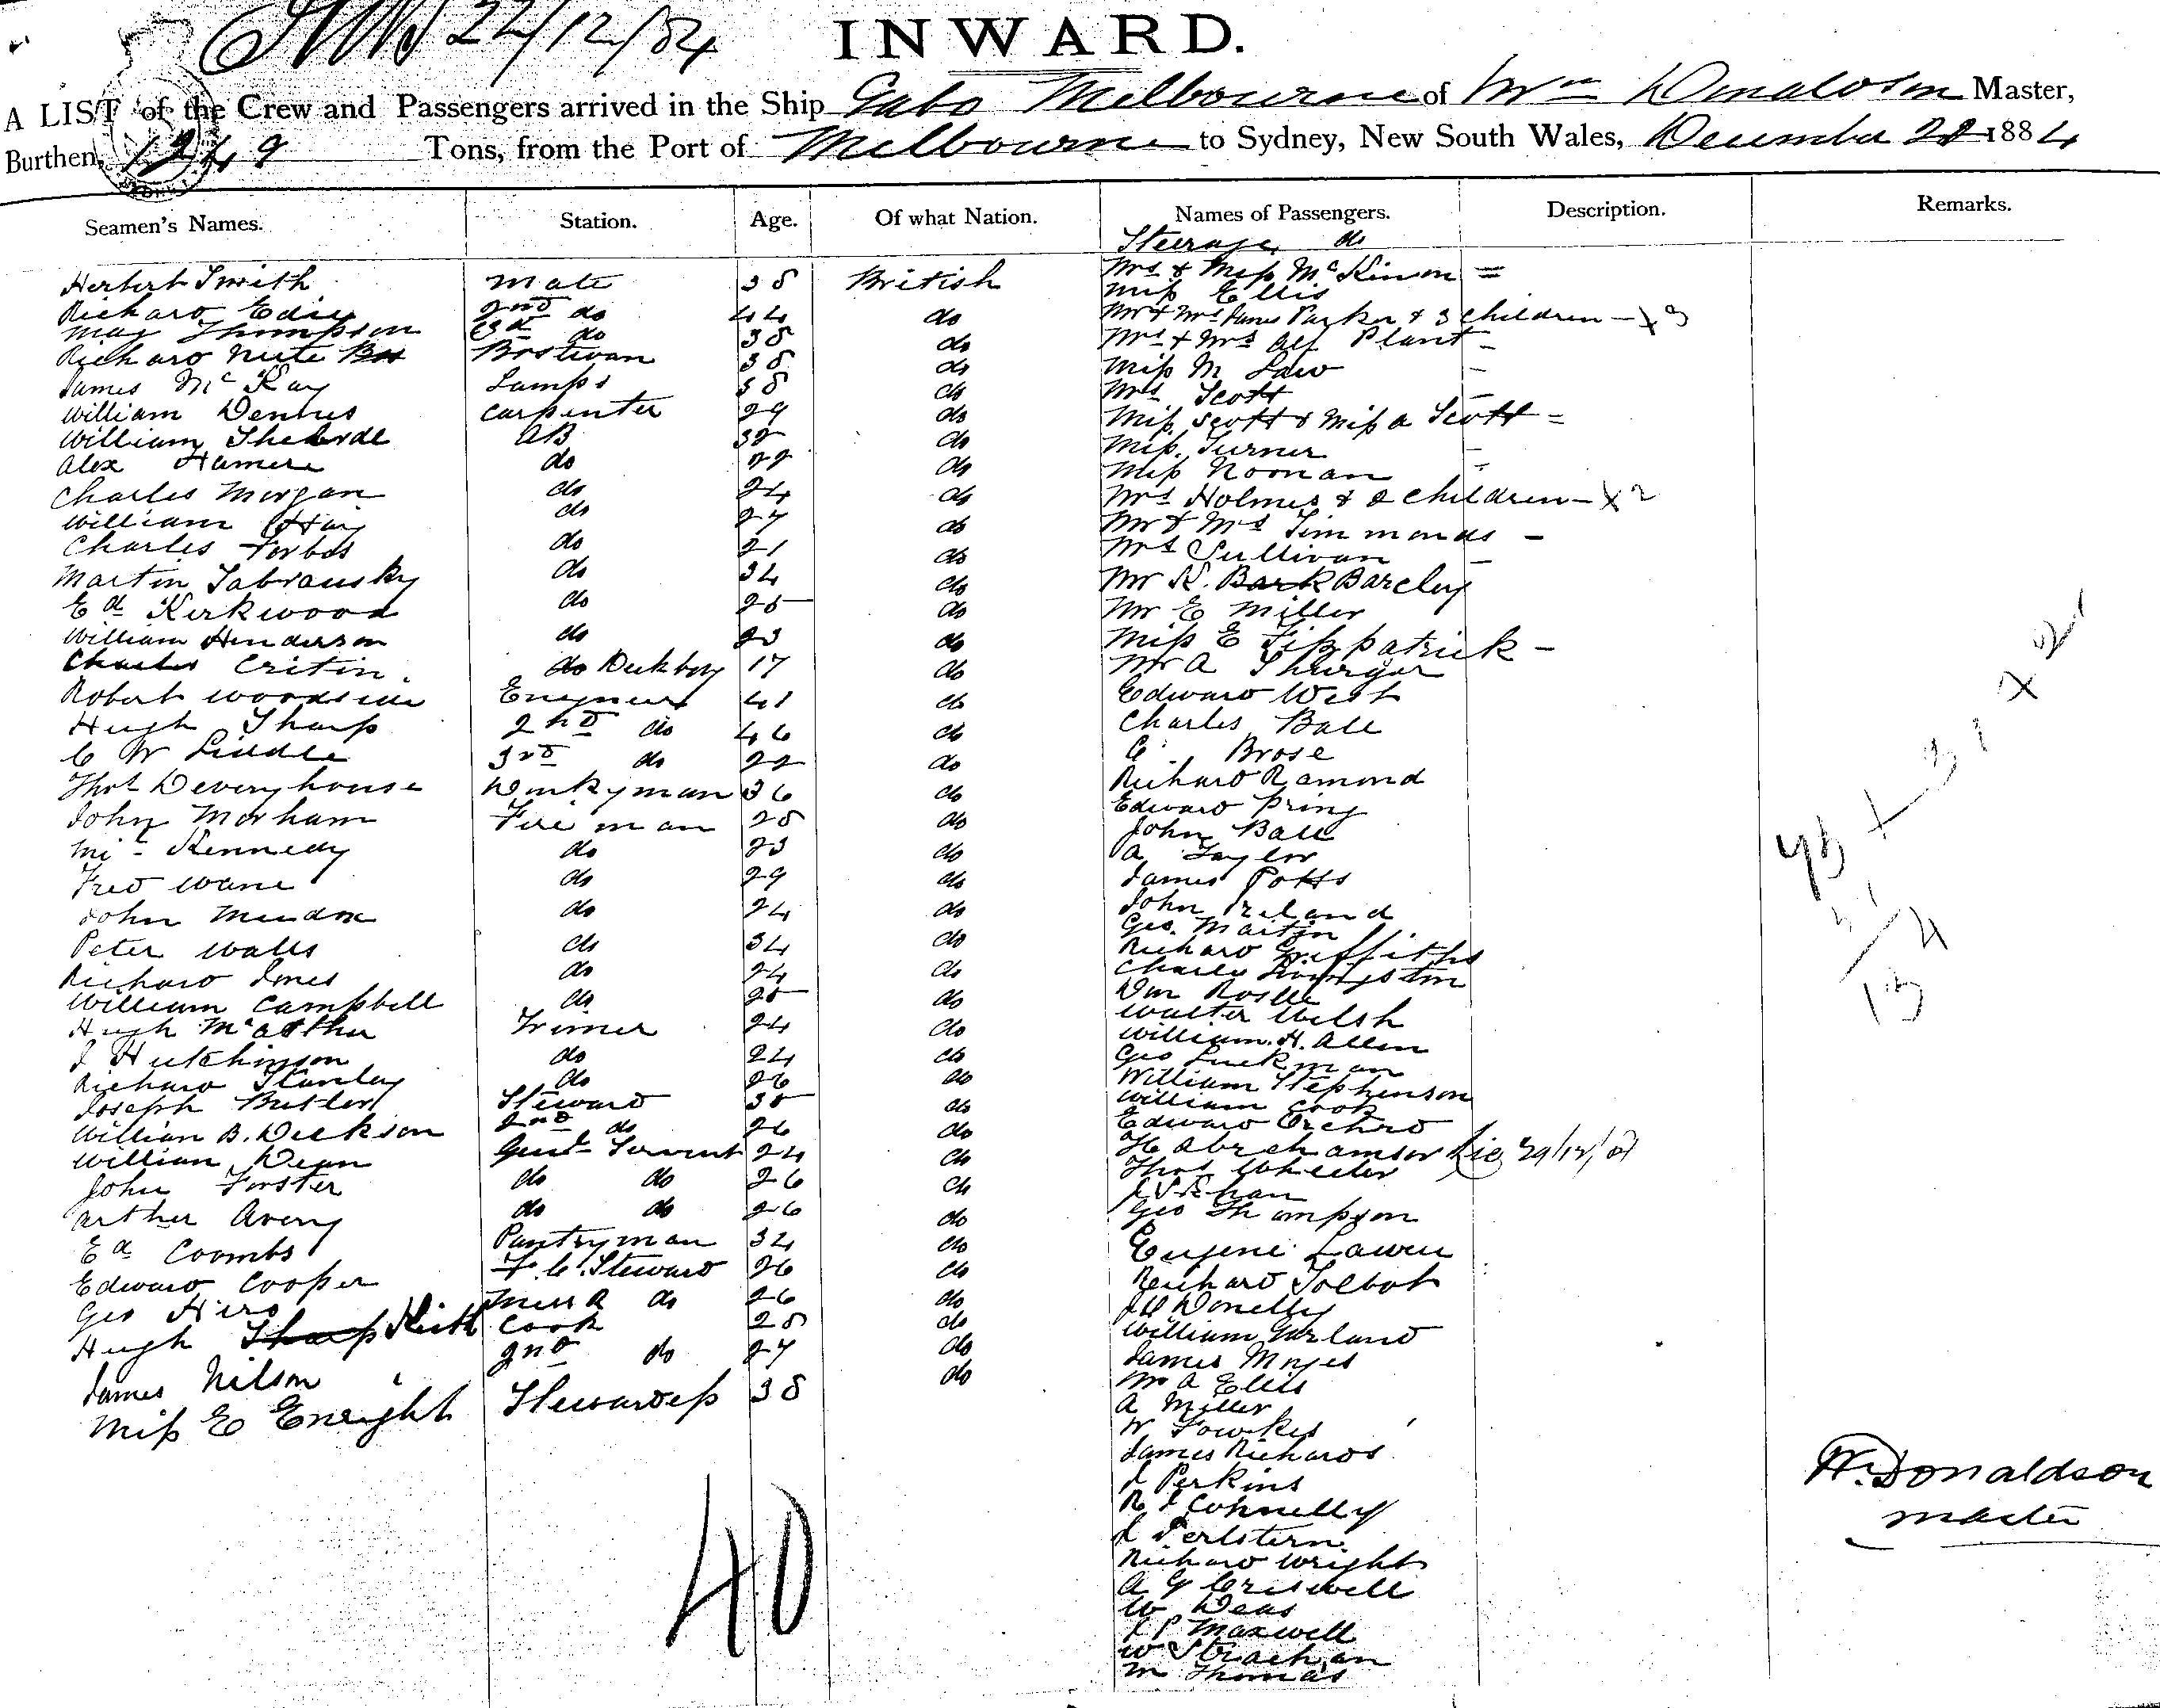 22/12/84
INWARD.
A LIST of the Crew and Passengers arrived in the Ship Gabo Melbourne of Wm Donaldson Master,
Burthen, 1249 Tons, from the Port of Melbourne to Sydney, New South Wales, December 22 1884
Seamen's Names. Station. Age. Of what Nation. Names of Passengers. Description. Remarks.
Steerage do
Herbert Smith mate 38 British Mrs & Miss McKinnon =
Miss Ellis
Richard Edie 2nd do 44 do Mr & Mrs James Parker & 3 children - x 3
May Thompson 3rd do 38 do Mrs & Mrs Alf Plant -
Richard Nute Bostwan 38 do Miss M Law -
James McKay Lamps 38 do Mrs Scott -
William Dennis Carpenter 29 do Miss Scott & Miss A Scott =
William AB 32 do Miss Turner -
Alex Hamere do 22 do Miss Noonan -
Charles Morgan do 24 do Mrs Holmes & 2 children - x 2
William Hay do 27 do Mr & Mrs Timmonds -
Charles Forbes do 21 do Mrs Sullivan -
Martin Tabrausky do 34 do Mr K. Bark Barclay
Ed Kirkwood do 25 do Mr E Miller
William Henderson do 23 do Miss E Fitzpatrick -
Charles Critin do Deckboy 17 do Mr A Thurgar
Robert Woodside Engineer 41 do Edward West
Hugh Sharp 2nd do 46 do Charles Ball
C W Liddle 3rd do 22 do C Brose
Thos Deveryhouse Donkyman 36 do Richard Ramond
John Morham Fireman 28 do Edward Pring
Mi Kennedy do 23 do John Ball
Fred Wane do 29 do A Taylor
James Potts
John do 24 do John Ireland
Geo. Martin
Peter Walls do 34 do Richard Griffiths
Richard Jones do 24 do Charles Livingston
William Campbell do 25 do Wm
Hugh McArthur Trimer 24 do Walter Welsh
William. H. Allen
J Hutchinson do 24 do Geo Luckman
Richard Stanley do 26 do William Stephenson
Joseph Butler Steward 35 do William Cook
William B. Dickson 2nd do 26 do Edward Orchard
William Dean Genl Servant 24 do H Abrahamson 29/12/84
John Forster do do 26 do Thos Wheeler
Arthur Avery do do 26 do
Geo Thompson
Ed Coombs Pantryman 32 do Eugene
Edward Cooper F.C. Steward 26 do Richard Tolbot
Geo Hird Mess R do 26 do Donelly
Hugh Sharp Keith Cook 28 do William Garland
James Nilson 2nd do 27 do James Moyes
Miss E Enright Stewardess 38 do Mr A Ellis
A Miller
W Fowkes
James Richards
J Perkins
R J Connelly
J Perlstern.
Richard Wright
A G Criswell
W Deas
J P Maxwell
W Strachan
M Thomas
40
W. Donaldson
master